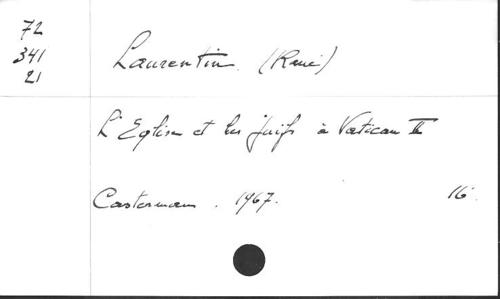 72
341
21
Laurentin. (René)
L'Eglise et les juifs à Vatican II
Casterman. 1967. 16